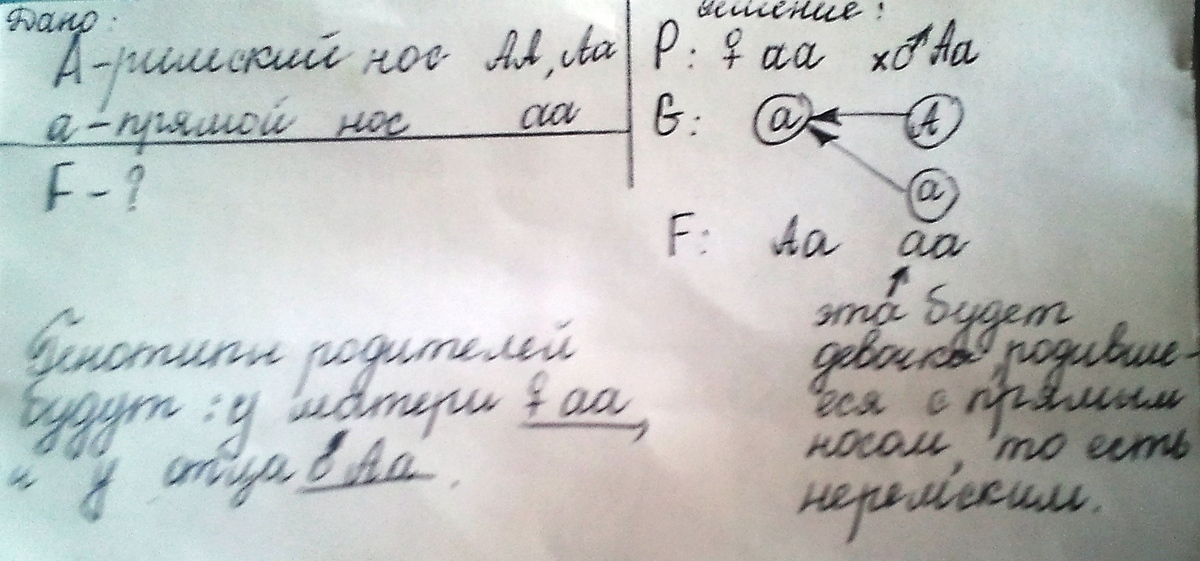 Дано:
А-римский нос АА, Аа
а-прямой нос аа
F-?
ешение:
P: ♀ аа x♂ Аа
G: а А
а
F: Аа аа
эта будет
девочка, родивше-
еся с прямым
носом, то есть
неремским.
Генотипы родителей
будут: у матери ♀ аа,
и у отца ♂ Аа.